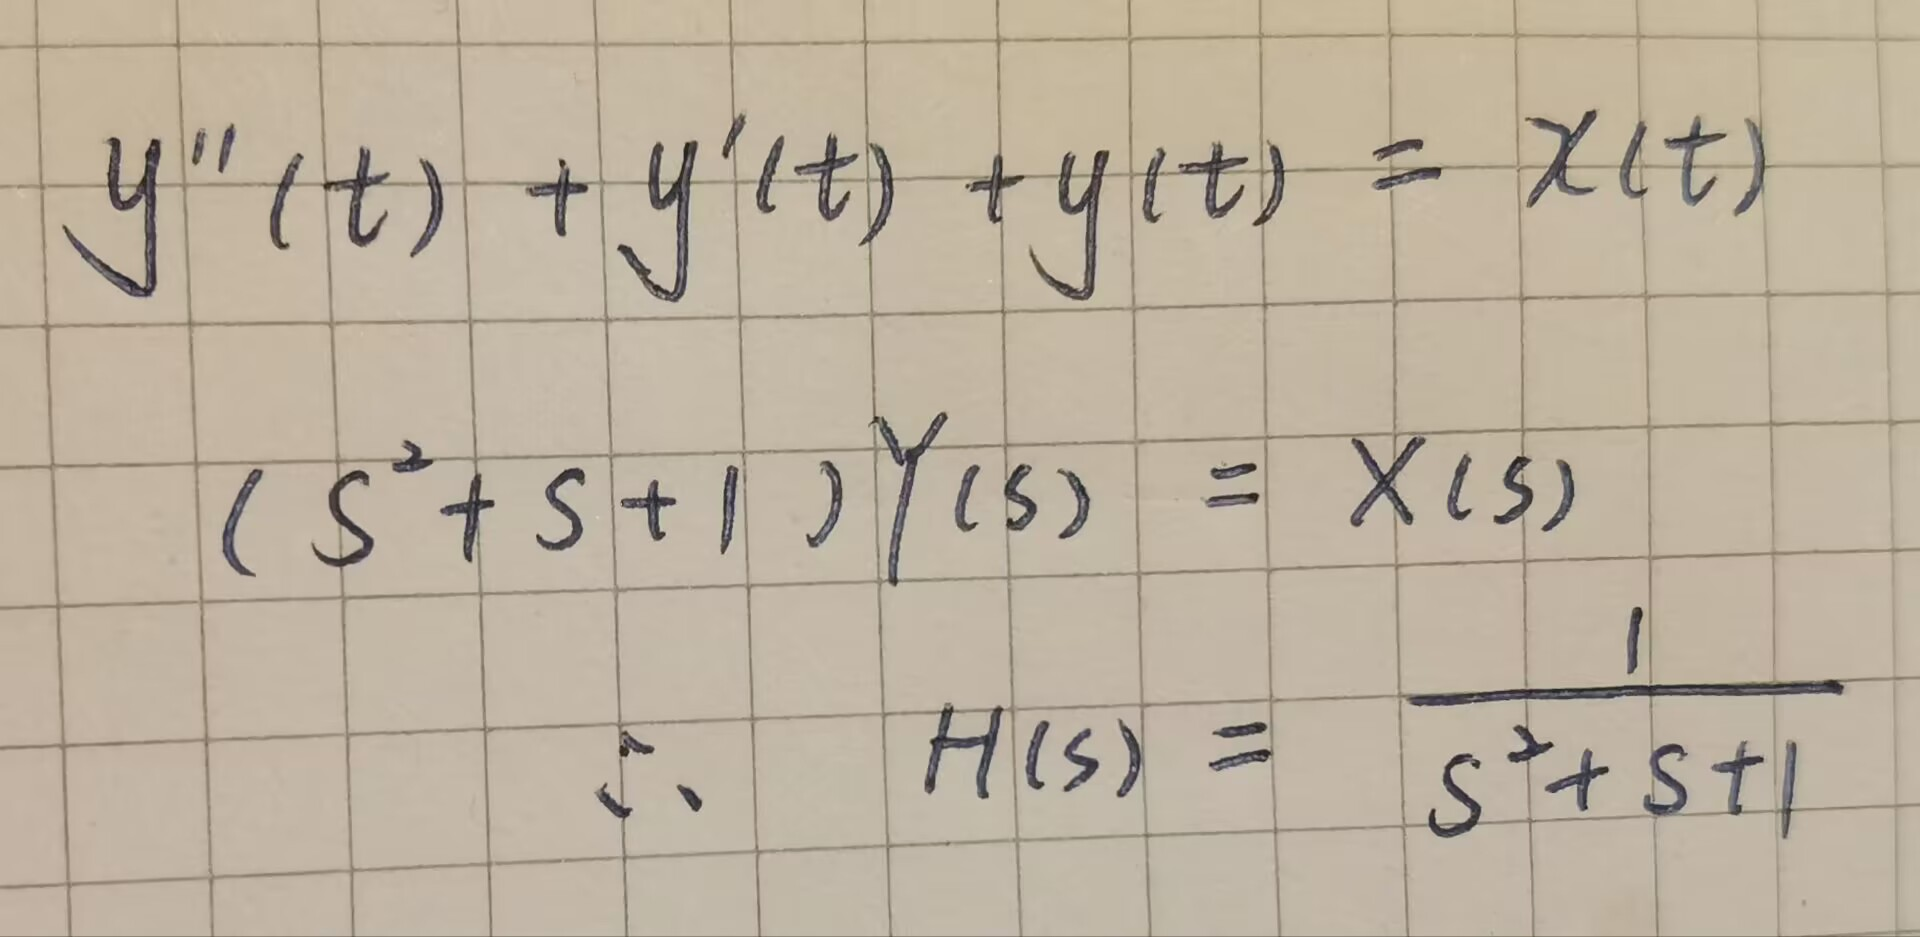 y''(t) + y'(t) + y(t) = x(t)
(s² + s + 1) Y(s) = X(s)
∴ H(s) = 1/(s² + s + 1)